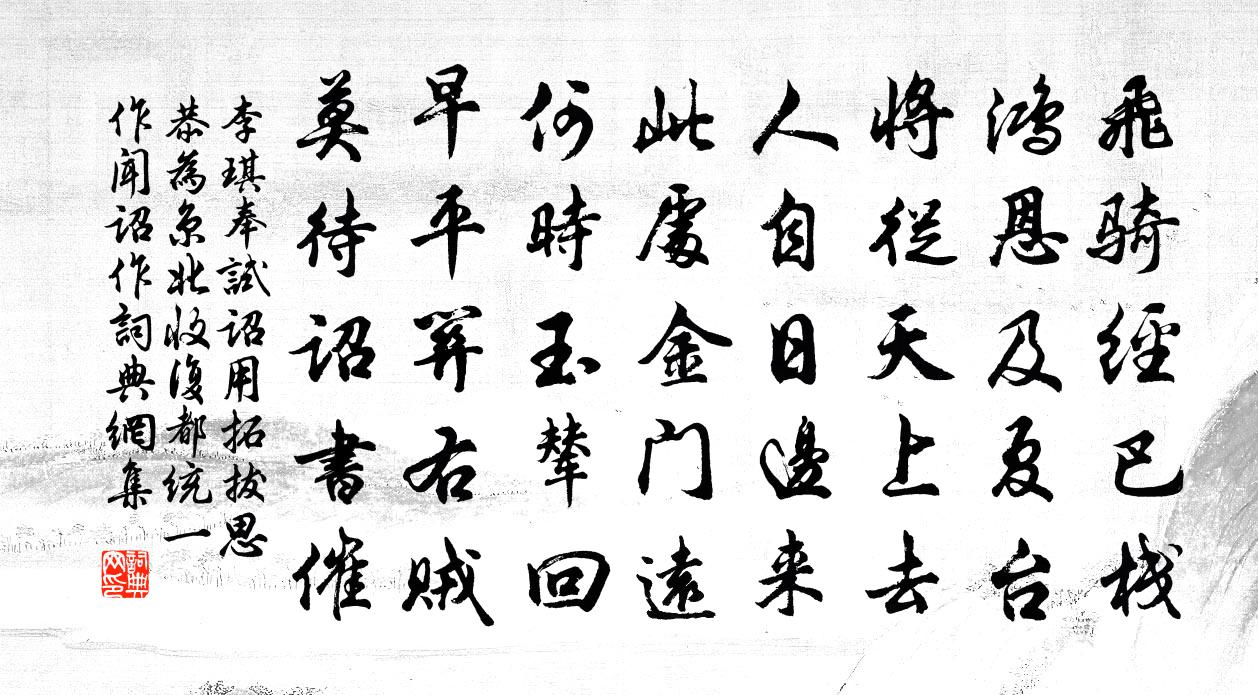 飛騎經巴棧
鴻恩及夏台
將從天上去
人自日邊来
此處金門遠
何時玉輦回
早平關右賊
莫待詔書催
李琪奉試詔用拓拔思
恭為京北收復都統一
作聞詔作詞典網集
詞典
网印